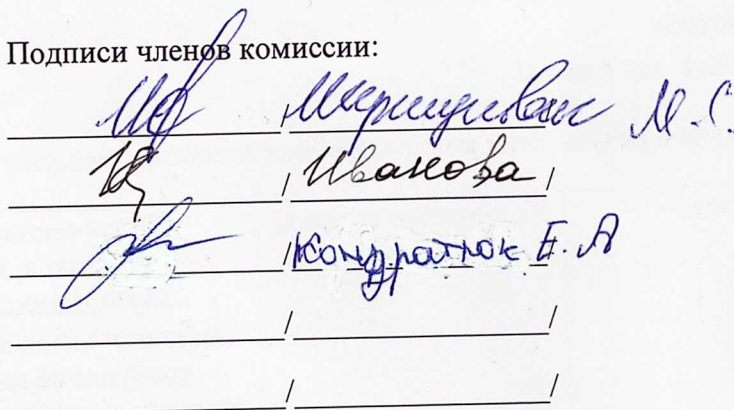 Подписи членов комиссии:
/ М. С.
/ Иванова /
/ Кондратюк Е. А
/ /
/ /